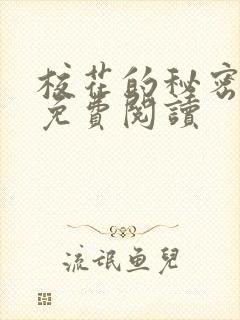 校花的秘密
免費閱讀
流氓鱼兒